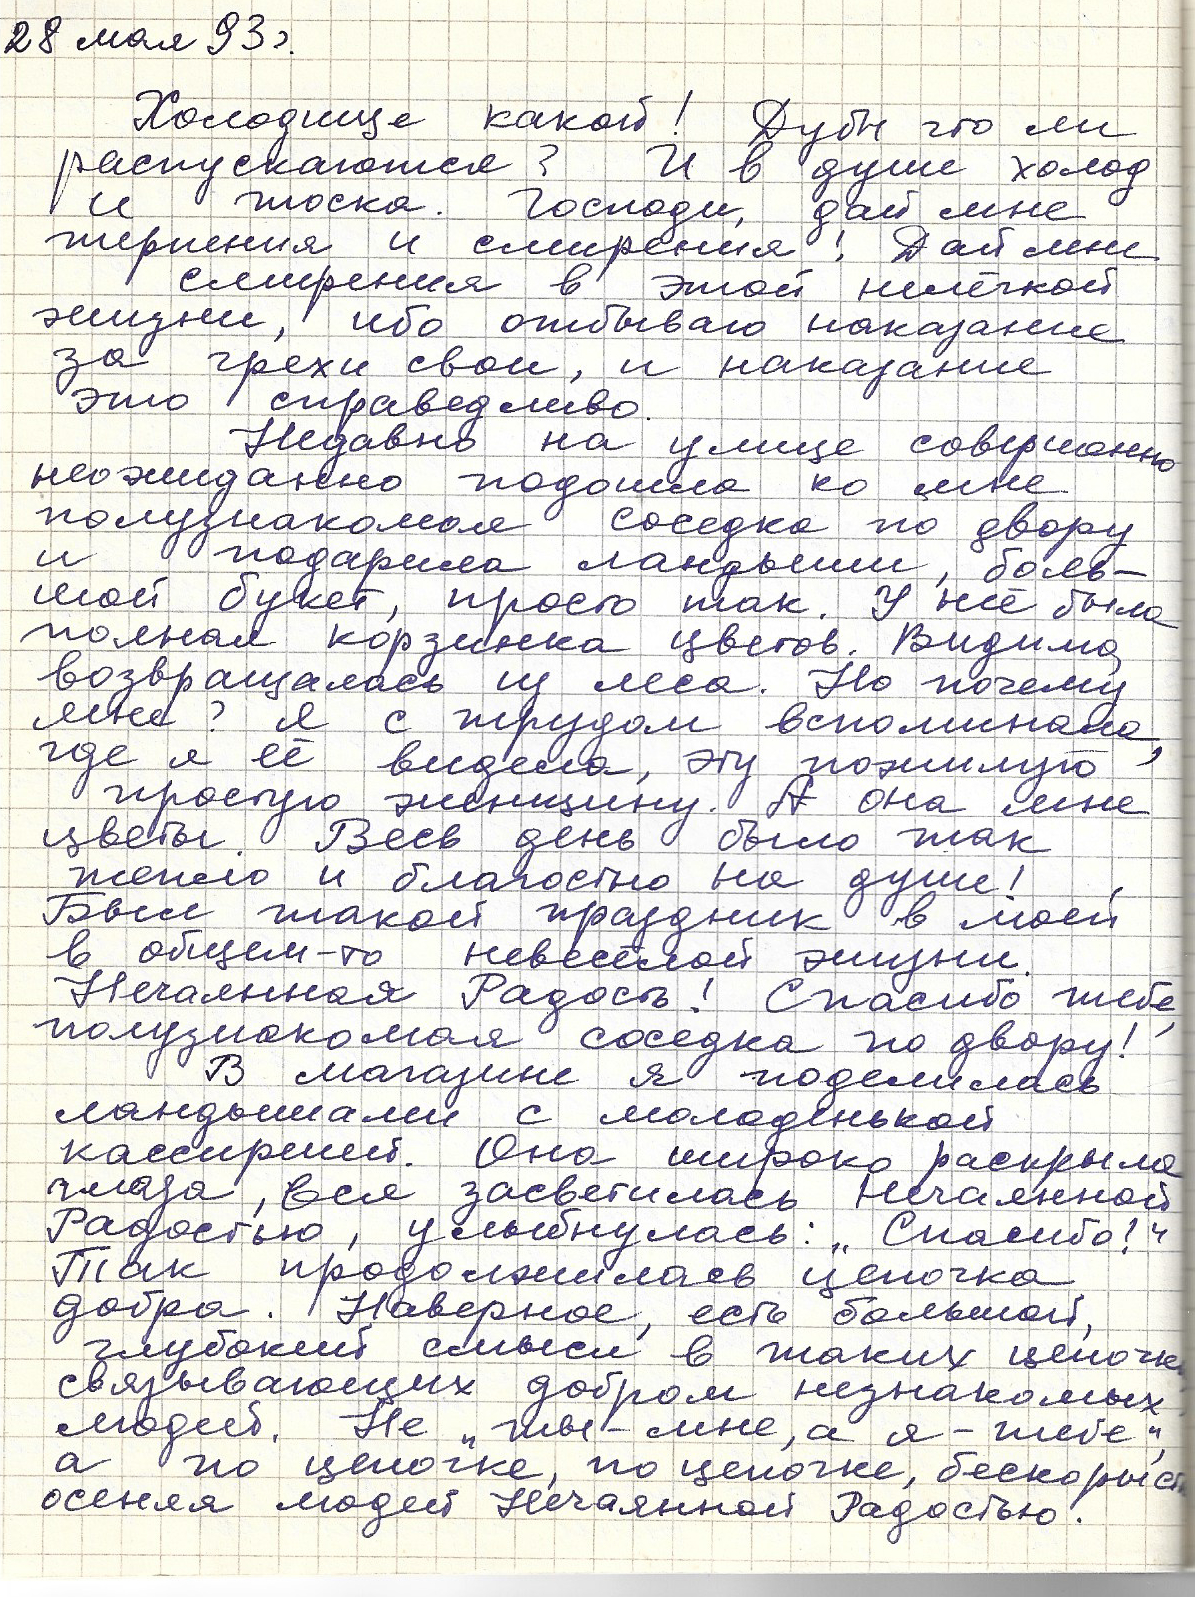 28 мая 93 г.
Холодище какой! Дубы что ли
распускаются? И в душе холод
и тоска. Господи, дай мне
терпения и смирения! Дай мне
смирения в этой нелёгкой
жизни, ибо отбываю наказание
за грехи свои, и наказание
это справедливо.
Недавно на улице совершенно
неожиданно подошла ко мне
полузнакомая соседка по двору
и подарила ландыши, боль-
шой букет, просто так. У неё была
полная корзинка цветов. Видимо,
возвращалась из леса. Но почему
мне? Я с трудом вспоминала,
где я её видела, эту пожилую
простую женщину. А она мне
цветы. Весь день было так
тепло и благостно на душе!
Был такой праздник в моей
в общем-то невесёлой жизни.
Нечаянная Радость! Спасибо тебе,
полузнакомая соседка по двору!
В магазине я поделилась
ландышами с молоденькой
кассиршей. Она широко раскрыла
глаза, вся засветилась Нечаянной
Радостью, улыбнулась: „Спасибо!"
Так продолжилась цепочка
добра. Наверное, есть большой,
глубокий смысл в таких цепочк
связывающих добром незнакомых
людей. Не „ты - мне, а я - тебе",
а по цепочке, по цепочке, бескорыст
осеняя людей Нечаянной Радостью.